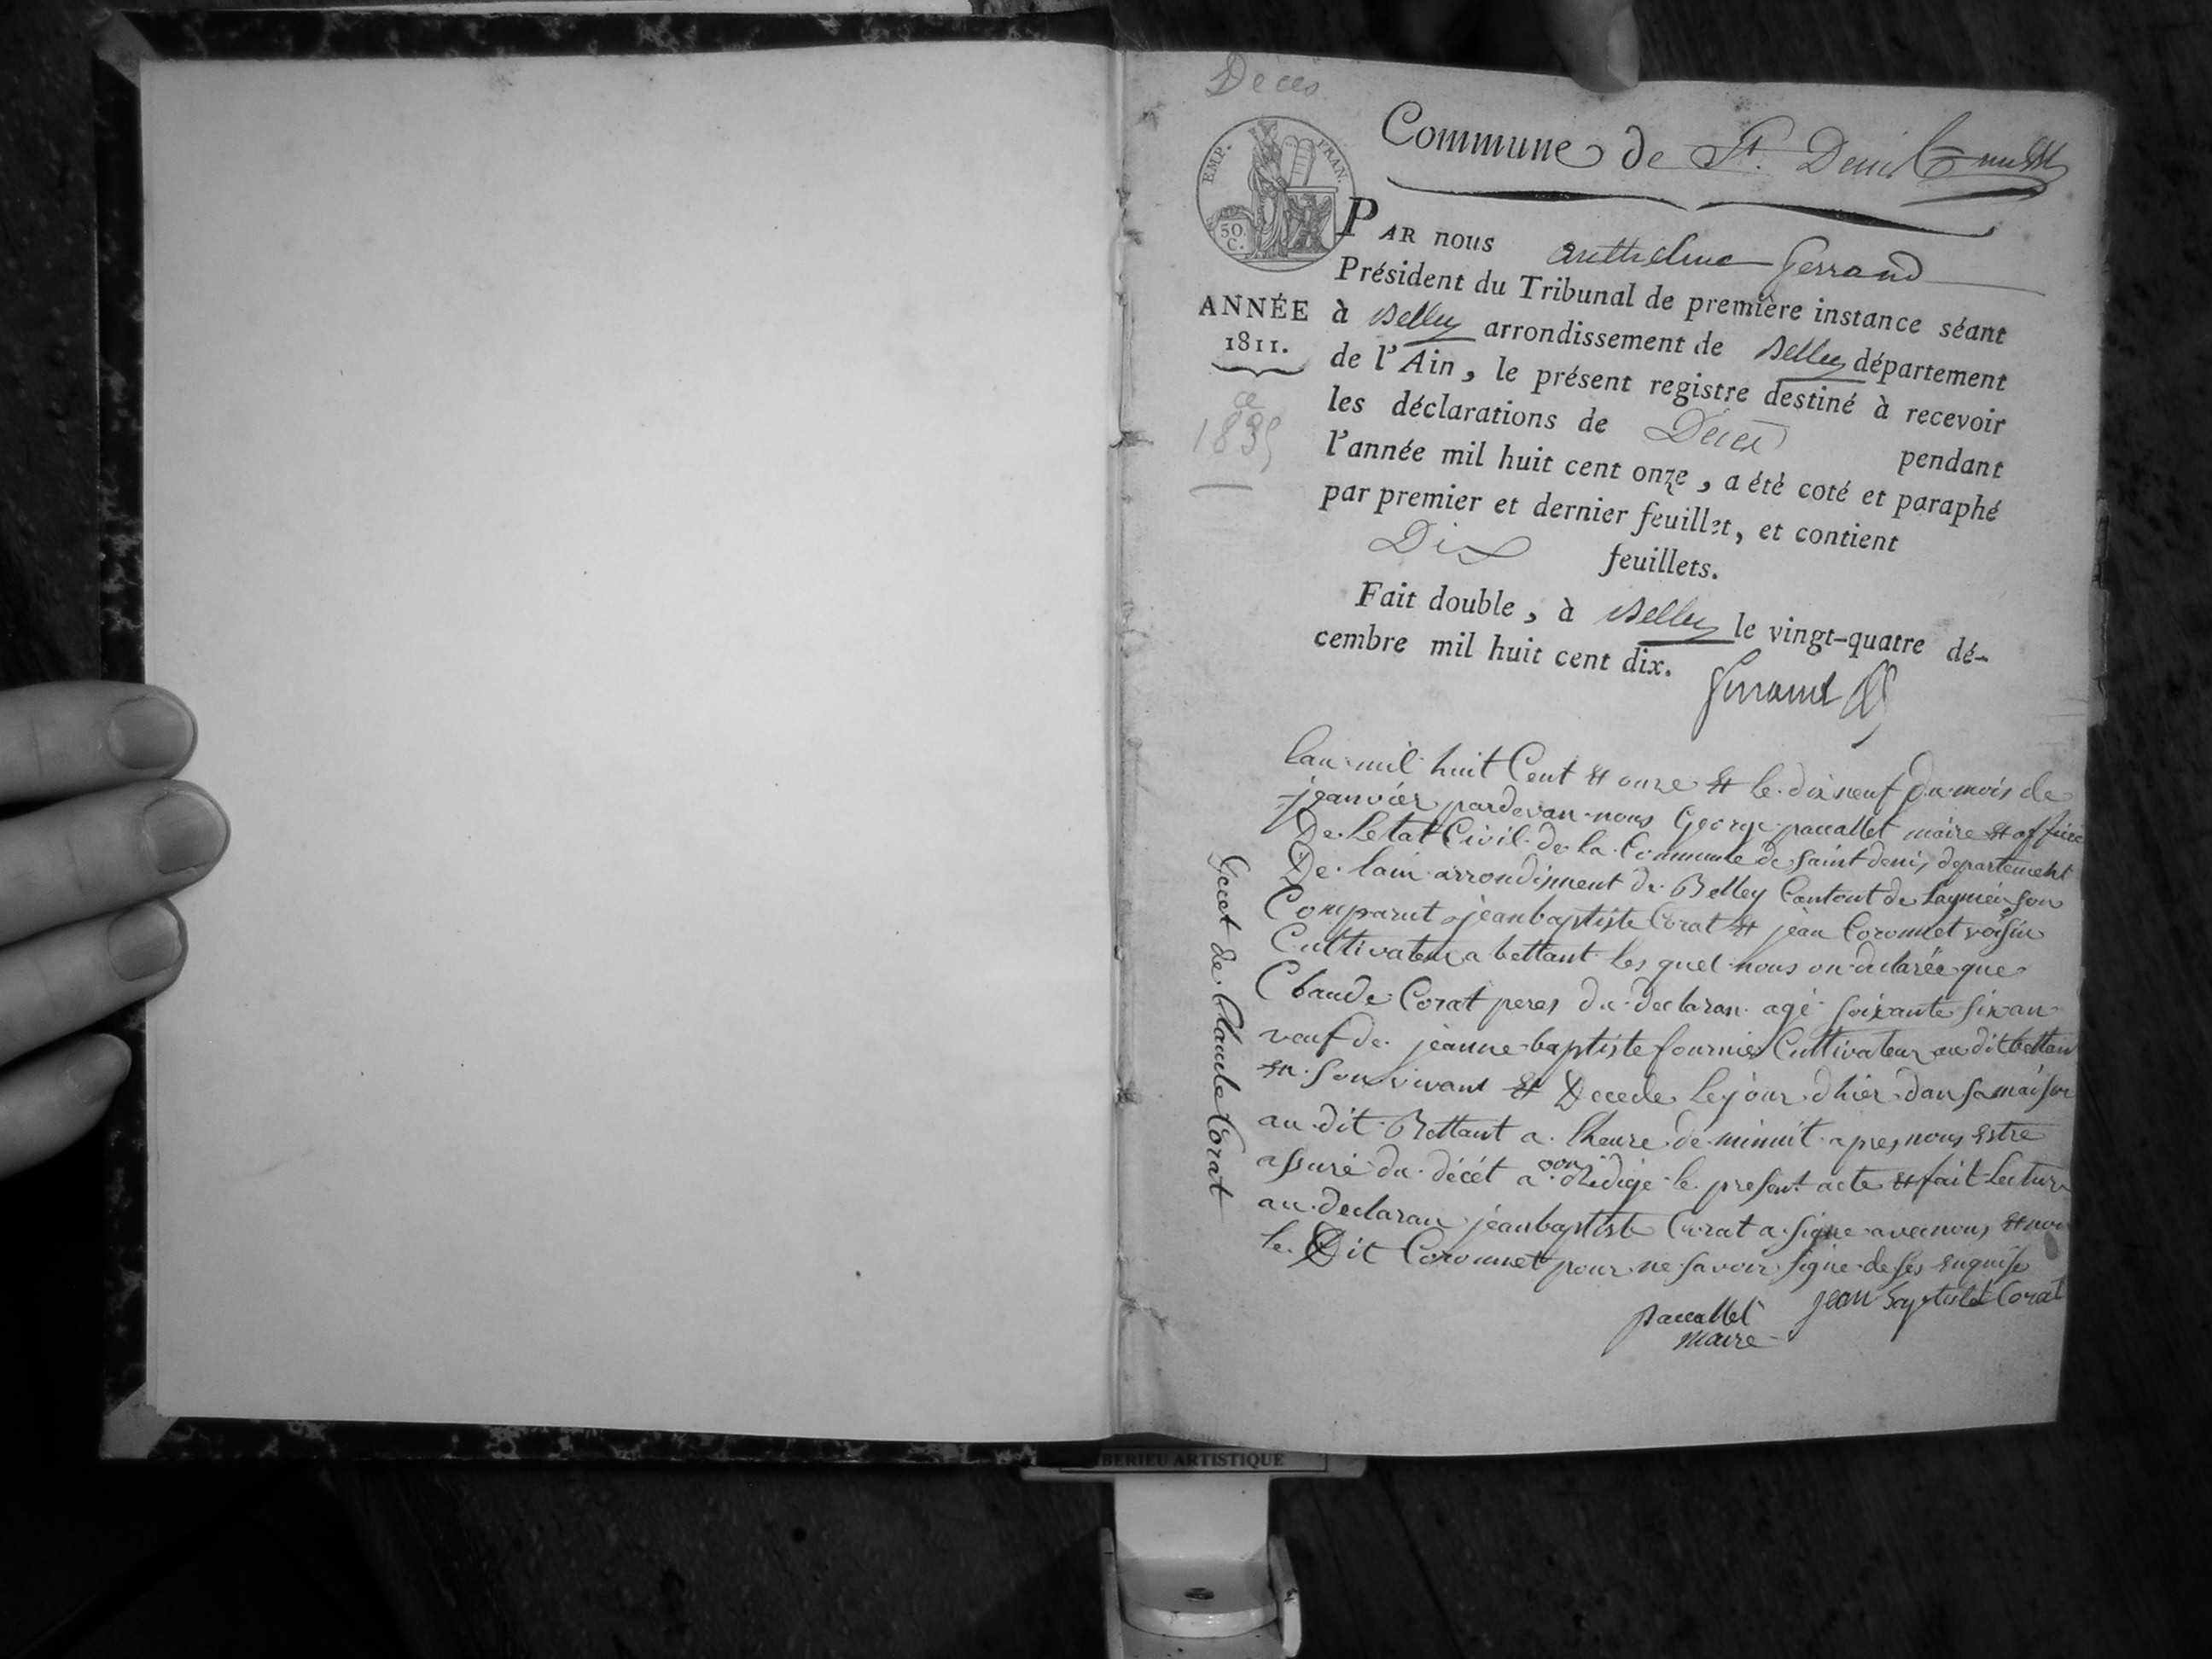 Décès
Commune de St. Denis
EMP. FRAN.
50
C.
PAR nous anthelme ferrand
Président du Tribunal de première instance séant
ANNÉE
1811.
a
1835
à Belley arrondissement de Belley département
de l'Ain, le présent registre destiné à recevoir
les déclarations de Décès pendant
l'année mil huit cent onze, a été coté et paraphé
par premier et dernier feuillet, et contient
Dix feuillets.
Fait double, à Belley le vingt-quatre dé-
cembre mil huit cent dix.
ferrand
lan mil huit Cent et onze et le dix neuf du mois de
jeanvier pardevan nous George paccallet maire et officie
De Letat Civil de la Commune de saint denis departement
De lain arrondisment de Belley Cantont de Lagnieu son
Comparut jeanbaptiste Corat et jean Coronnet voisin
Cultivateur a bettant les quel nous on declarée que
Claude Corat peres du declaran agé soixante six an
veuf de jeanne baptiste fournier Cultivateur au dit bettan
en son vivant et Decede le jour dhier dans sa maison
au dit Bettant a lheure de minuit apres nous estre
assuré du décét avon Redige le present acte et fait lecture
au declaran jeanbaptiste Corat a signe avec nous et non
le Dit Coronnet pour ne savoir signe de ses enquise
jean baptiste Corat
paccallet
maire
Decet de Claude Corat
BERIEU ARTISTIQUE